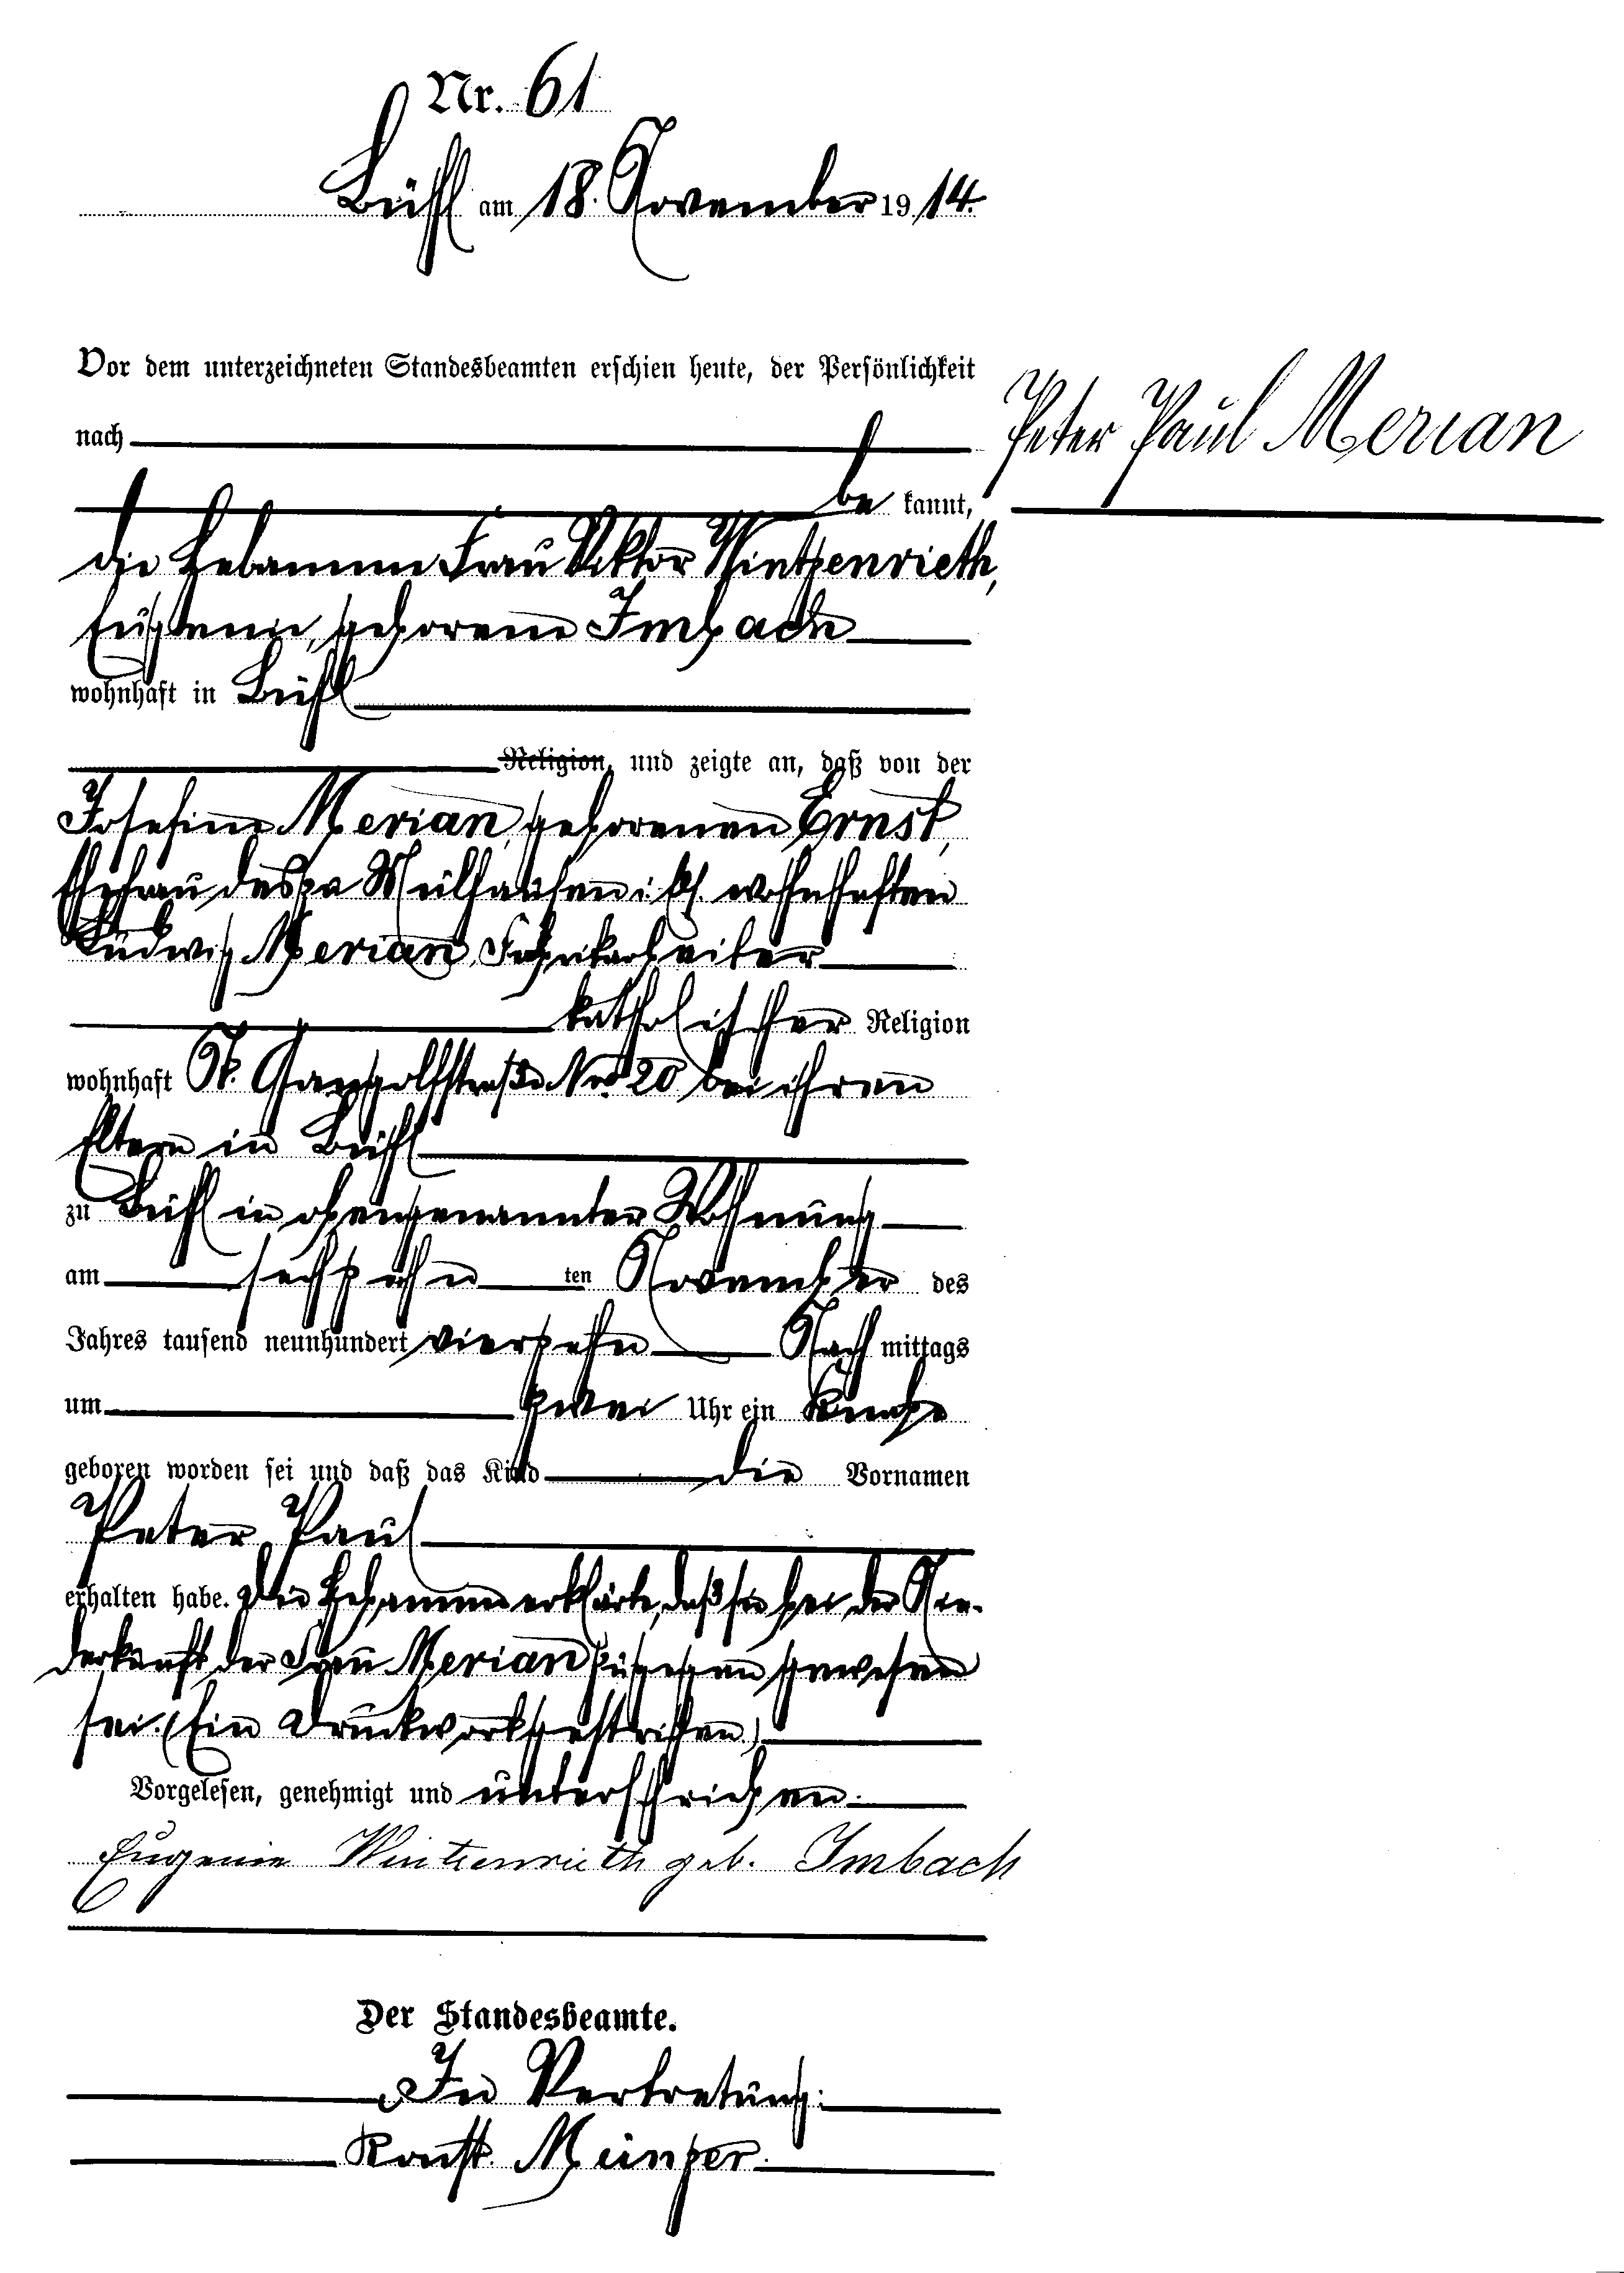 Nr. 61
Bühl am 18. November 1914.
Vor dem unterzeichneten Standesbeamten erschien heute, der Persönlichkeit
nach
Peter Paul Merian
be kannt,
die Hebamme Frau Viktor Wintzenrieth,
Eugenie, geborene Imbach
wohnhaft in Bühl
Religion, und zeigte an, daß von der
Josefine Merian, geborenen Ernst,
Ehefrau des zu Mülhausen i. Els. wohnhaften
Ludwig Merian, Fabrikarbeiter
katholischer Religion
wohnhaft St. Gangolfstraße Nro 20 bei ihren
Eltern in Bühl
zu Bühl in obengenannter Wohnung
am sechzehn ten November des
Jahres tausend neunhundert vierzehn Nach mittags
um zwei Uhr ein Knabe
geboren worden sei und daß das Kind die Vornamen
Peter Paul
erhalten habe. Die Hebamme erklärte, daß sie bei der Nie-
derkunft der Frau Merian zugegen gewesen
sei. (Ein Druckwort gestrichen.)
Vorgelesen, genehmigt und unterschrieben.
Eugenie Wintzenrieth geb. Imbach
Der Standesbeamte.
In Vertretung:
Konst. Meinzer.